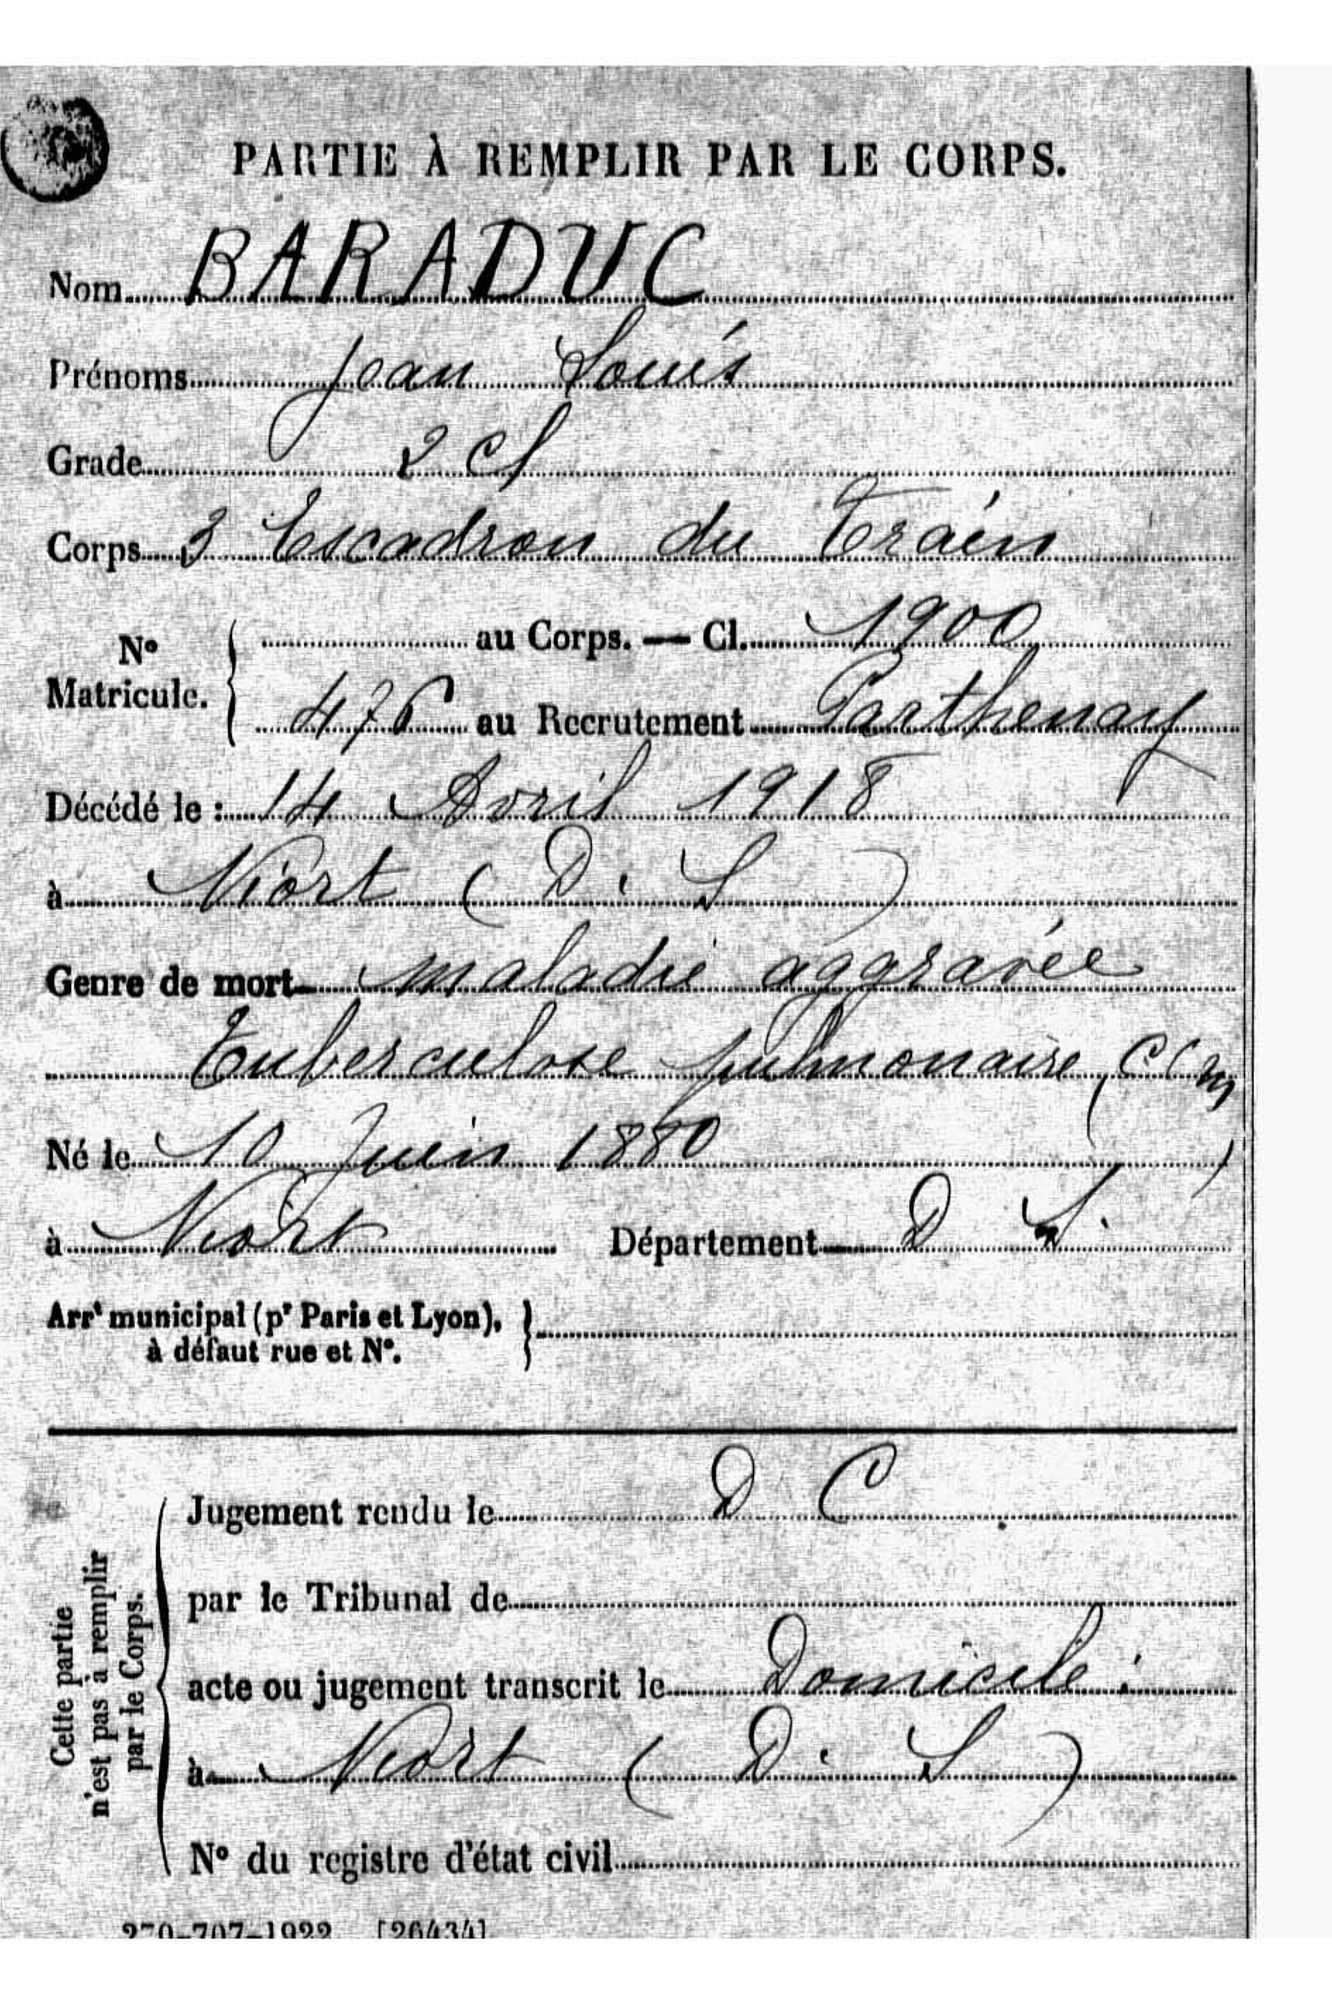 PARTIE À REMPLIR PAR LE CORPS.
Nom BARADUC
Prénoms Jean Louis
Grade 2 Cl
Corps 3 Escadron du Train
N° Matricule. au Corps. — Cl. 1900
476 au Recrutement Parthenay
Décédé le : 14 Avril 1918
à Niort (D. S)
Genre de mort maladie aggravée
Tuberculose pulmonaire (CCM)
Né le 10 Juin 1880
à Niort Département D S.
Arrt municipal (pr Paris et Lyon),
à défaut rue et N°.
Cette partie
n'est pas à remplir
par le Corps.
Jugement rendu le D C
par le Tribunal de
acte ou jugement transcrit le Domicile :
à Niort (D. S)
N° du registre d'état civil
270-707-1922 [26434]